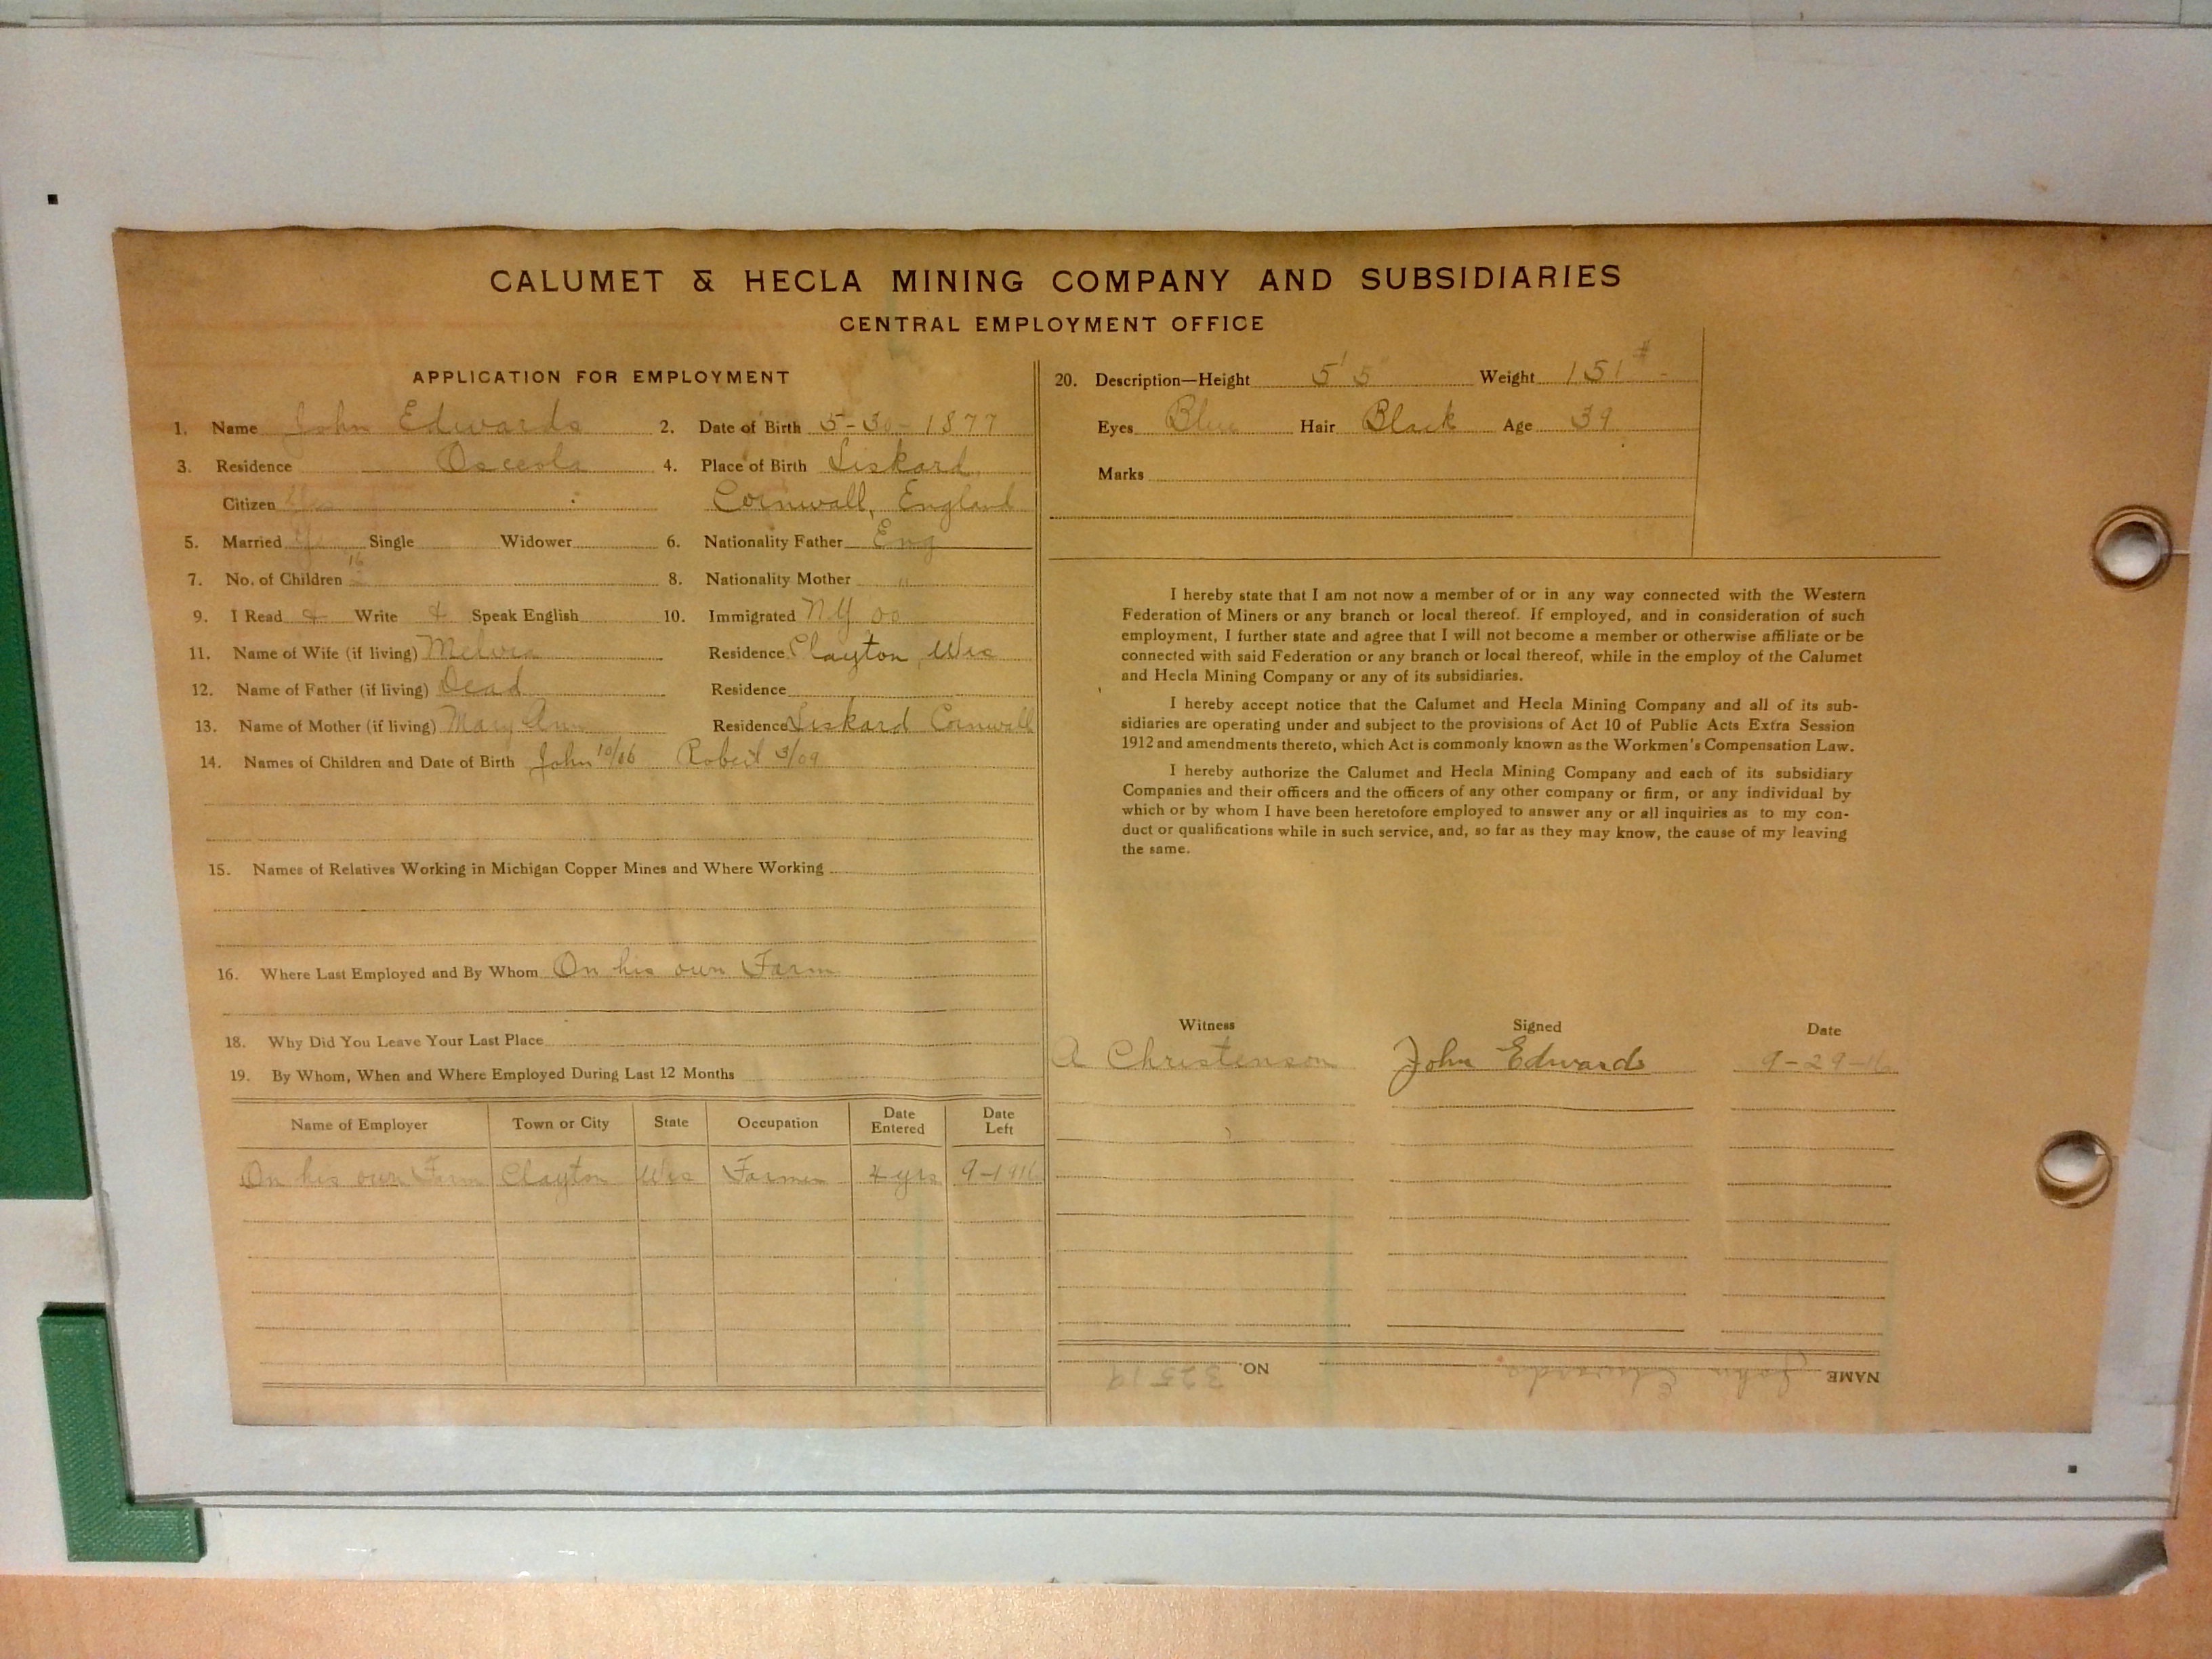 CALUMET & HECLA MINING COMPANY AND SUBSIDIARIES
CENTRAL EMPLOYMENT OFFICE
APPLICATION FOR EMPLOYMENT
1. Name John Edwards 2. Date of Birth 5-30-1877
3. Residence Osceola 4. Place of Birth Liskard
Citizen Yes Cornwall, England
5. Married Yes Single Widower 6. Nationality Father Eng
7. No. of Children 8. Nationality Mother "
9. I Read & Write & Speak English 10. Immigrated NY 00
11. Name of Wife (if living) Melvia Residence Clayton, Wis
12. Name of Father (if living) Dead Residence
13. Name of Mother (if living) Mary Ann Residence Liskard Cornwall
14. Names of Children and Date of Birth John 10/06 Robert 3/09
15. Names of Relatives Working in Michigan Copper Mines and Where Working
16. Where Last Employed and By Whom On his own Farm
18. Why Did You Leave Your Last Place
19. By Whom, When and Where Employed During Last 12 Months
Name of Employer Town or City State Occupation Date Entered Date Left
On his own Farm Clayton Wis Farmer 4 yrs 9-1916
20. Description—Height 5' 5 Weight 151#
Eyes Blue Hair Black Age 39
Marks
I hereby state that I am not now a member of or in any way connected with the Western
Federation of Miners or any branch or local thereof. If employed, and in consideration of such
employment, I further state and agree that I will not become a member or otherwise affiliate or be
connected with said Federation or any branch or local thereof, while in the employ of the Calumet
and Hecla Mining Company or any of its subsidiaries.
I hereby accept notice that the Calumet and Hecla Mining Company and all of its sub-
sidiaries are operating under and subject to the provisions of Act 10 of Public Acts Extra Session
1912 and amendments thereto, which Act is commonly known as the Workmen's Compensation Law.
I hereby authorize the Calumet and Hecla Mining Company and each of its subsidiary
Companies and their officers and the officers of any other company or firm, or any individual by
which or by whom I have been heretofore employed to answer any or all inquiries as to my con-
duct or qualifications while in such service, and, so far as they may know, the cause of my leaving
the same.
Witness Signed Date
A Christenson John Edwards 9-29-16
NAME John Edwards NO. 32519